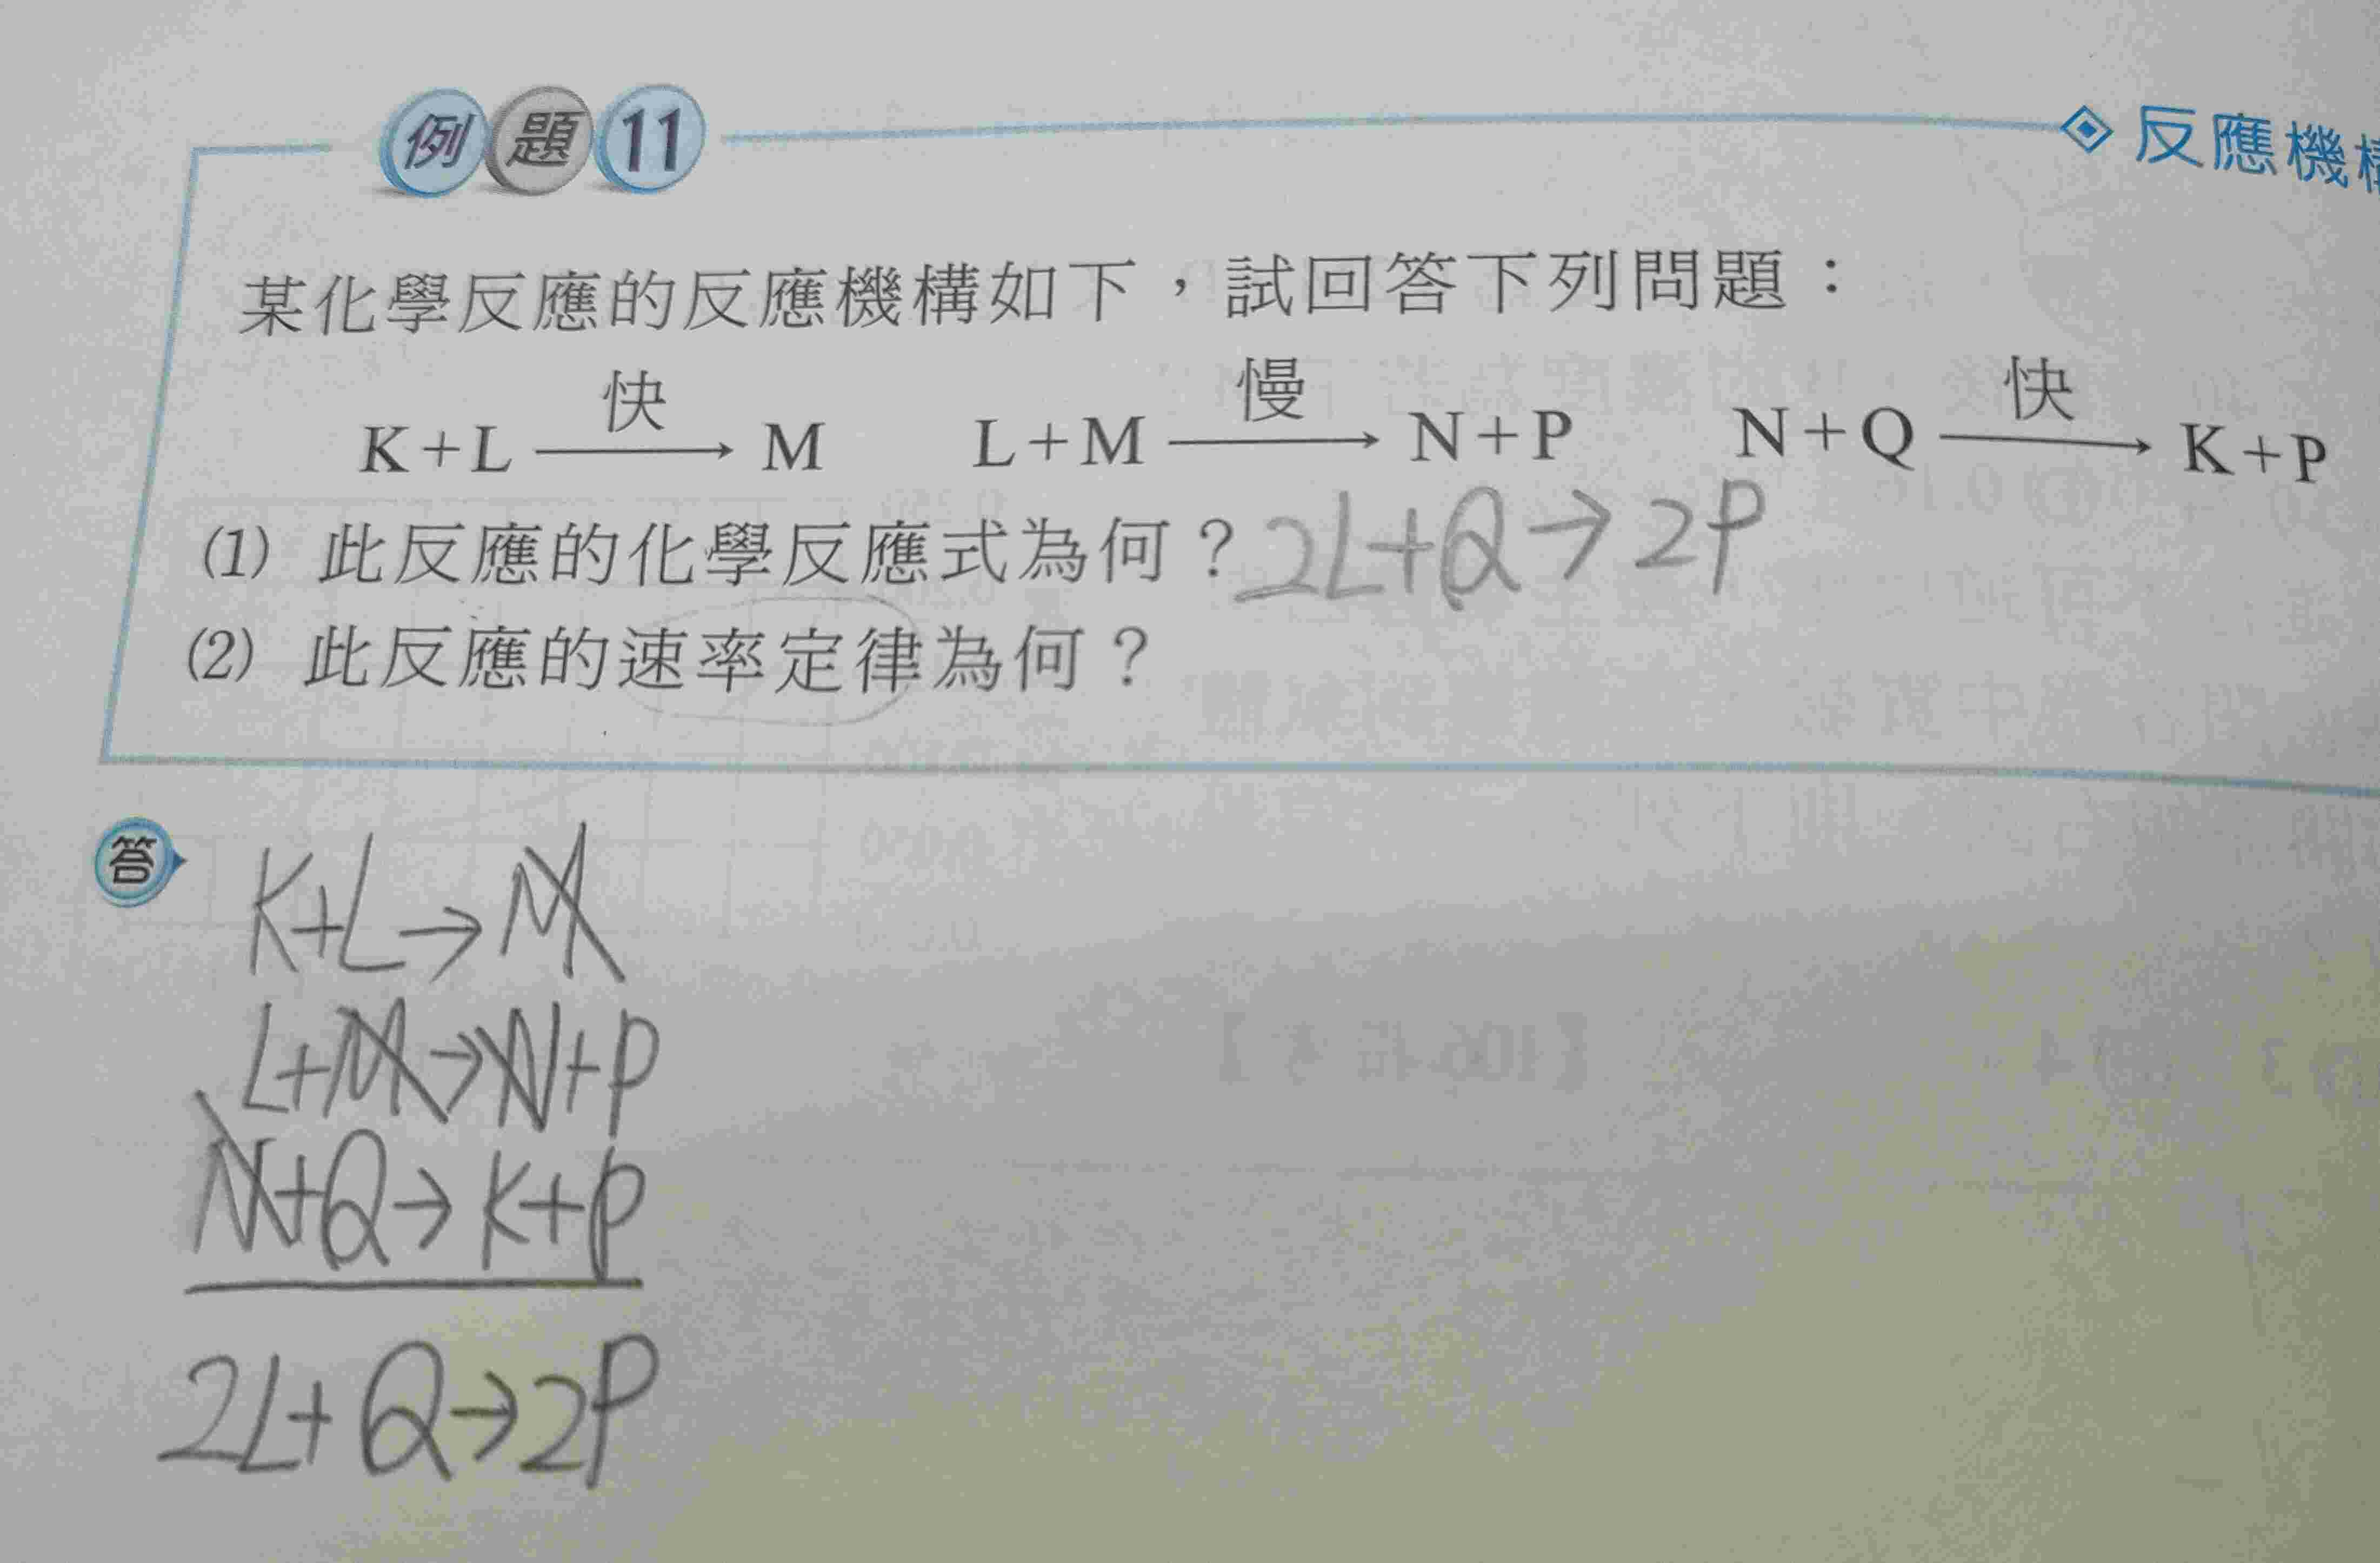 例題11
反應機構
某化學反應的反應機構如下，試回答下列問題：
K+L 快→ M L+M 慢→ N+P N+Q 快→ K+P
(1) 此反應的化學反應式為何？2L+Q→2P
(2) 此反應的速率定律為何？
答
K+L→M
L+M→N+P
N+Q→K+P
2L+Q→2P